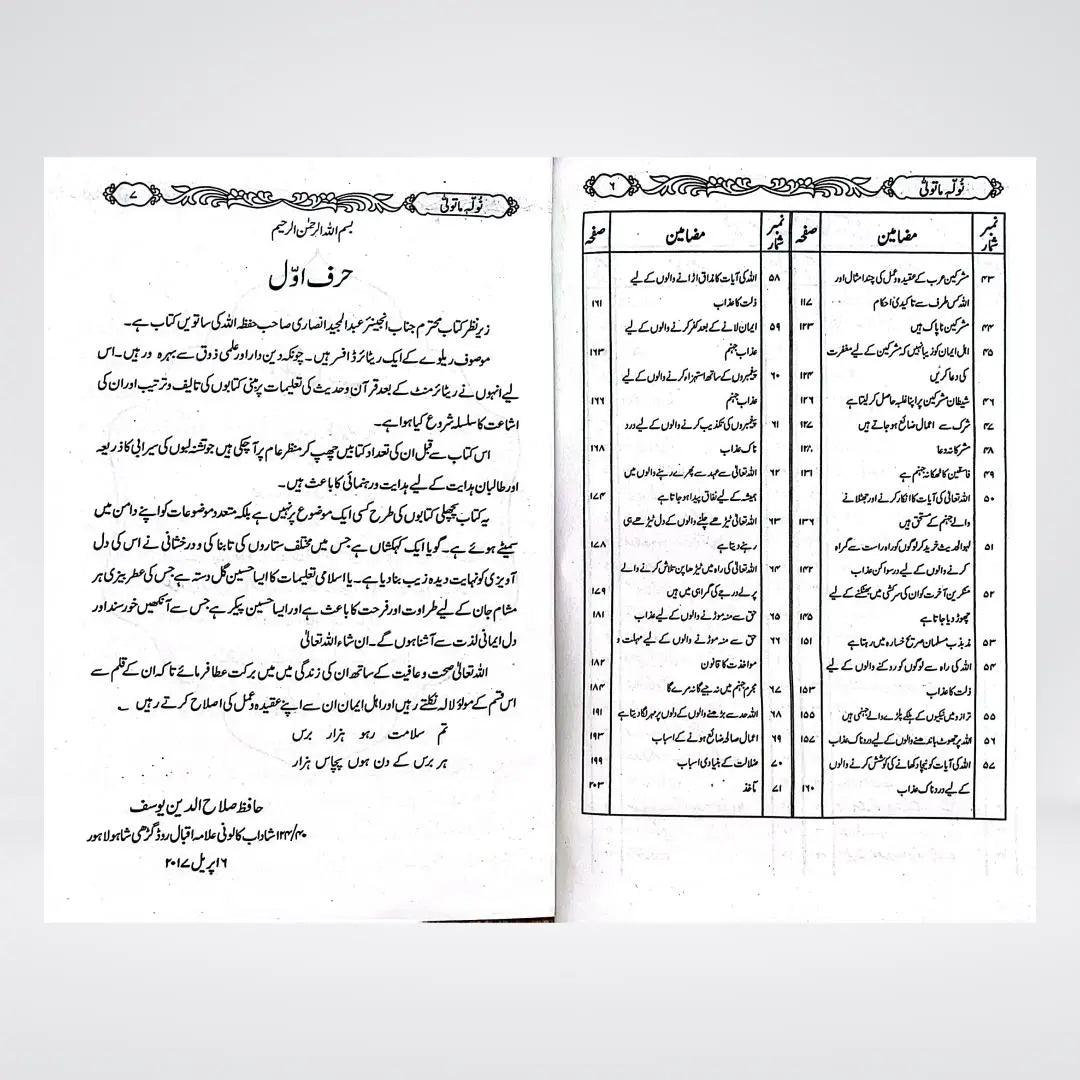 نُوَلِّهٖ مَا تَوَلّٰی
٦
نمبر شمار
مضامین
صفحہ
۴۳
مشرکین عرب کے عقیدہ و عمل کی چند امثال اور
اللہ کس طرف سے تاکیدی احکام
۱۱۷
۴۴
مشرکین ناپاک ہیں
۱۲۳
۴۵
اہل ایمان کو زیبا نہیں کہ مشرکین کے لیے مغفرت
کی دعا کریں
۱۲۴
۴۶
شیطان مشرکین پر اپنا غلبہ حاصل کر لیتا ہے
۱۲۶
۴۷
شرک سے اعمال ضائع ہو جاتے ہیں
۱۲۷
۴۸
مشرکانہ دعا
۴۹
فاسقین کا ٹھکانہ جہنم ہے
۱۳۱
۵۰
اللہ تعالیٰ کی آیات کا انکار کرنے اور جھٹلانے
والے جہنم کے مستحق ہیں
۱۳۶
۵۱
لہو الحدیث خرید کر لوگوں کو راہ راست سے گمراہ
کرنے والوں کے لیے رسواکن عذاب
۱۴۲
۵۲
منکرین آخرت کو ان کی سرکشی میں بھٹکنے کے لیے
چھوڑ دیا جاتا ہے
۱۴۵
۵۳
مذبذب مسلمان صریح خسارہ میں رہتا ہے
۱۵۱
۵۴
اللہ کی راہ سے لوگوں کو روکنے والوں کے لیے
ذلت کا عذاب
۱۵۳
۵۵
ترازو میں نیکیوں کے ہلکے پلڑے والے جہنمی ہیں
۱۵۵
۵۶
اللہ پر جھوٹ باندھنے والوں کے لیے دردناک عذاب
۱۵۷
۵۷
اللہ کی آیات کو نیچا دکھانے کی کوشش کرنے والوں
کے لیے دردناک عذاب
۱۶۰
نمبر شمار
مضامین
صفحہ
۵۸
اللہ کی آیات کا مذاق اڑانے والوں کے لیے
ذلت کا عذاب
۱۶۱
۵۹
ایمان لانے کے بعد کفر کرنے والوں کے لیے
عذاب جہنم
۱۶۳
۶۰
پیغمبروں کے ساتھ استہزاء کرنے والوں کے لیے
عذاب جہنم
۱۶۶
۶۱
پیغمبروں کی تکذیب کرنے والوں کے لیے درد
ناک عذاب
۱۶۸
۶۲
اللہ تعالیٰ سے عہد سے پھرے رہنے والوں میں
ہمیشہ کے لیے نفاق پیدا ہو جاتا ہے
۱۷۴
۶۳
اللہ تعالیٰ ٹیڑھے چلنے والوں کے دل ٹیڑھے ہی
رہنے دیتا ہے
۱۷۸
۶۴
اللہ تعالیٰ کی راہ میں ٹیڑھا پن تلاش کرنے والے
پرلے درجے کی گمراہی میں ہیں
۱۷۹
۶۵
حق سے منہ موڑنے والوں کے لیے عذاب
۱۸۱
۶۶
حق سے منہ موڑنے والوں کے لیے مہلت و
مواخذت کا قانون
۱۸۲
۶۷
مجرم جہنم میں نہ جیے گا نہ مرے گا
۱۸۴
۶۸
اللہ حد سے بڑھنے والوں کے دلوں پر مہر لگا دیتا ہے
۱۹۱
۶۹
اعمال صالحہ ضائع ہونے کے اسباب
۱۹۳
۷۰
ضلالت کے بنیادی اسباب
۱۹۹
۷۱
مآخذ
۲۰۳
نُوَلِّهٖ مَا تَوَلّٰی
۷
بسم اللہ الرحمٰن الرحیم
حرف اوّل
زیر نظر کتاب محترم جناب انجینئر عبدالمجید انصاری صاحب حفظہ اللہ کی ساتویں کتاب ہے۔
موصوف ریلوے کے ایک ریٹائرڈ افسر ہیں۔ چونکہ دین دار اور علمی ذوق سے بہرہ ور ہیں۔ اس
لیے انہوں نے ریٹائرمنٹ کے بعد قرآن و حدیث کی تعلیمات پر مبنی کتابوں کی تالیف و ترتیب اور ان کی
اشاعت کا سلسلہ شروع کیا ہوا ہے۔
اس کتاب سے قبل ان کی تعداد کتابیں چھپ کر منظر عام پر آ چکی ہیں جو تشنہ لبوں کی سیرابی کا ذریعہ
اور طالبان ہدایت کے لیے ہدایت و رہنمائی کا باعث ہیں۔
یہ کتاب پچھلی کتابوں کی طرح کسی ایک موضوع پر نہیں ہے بلکہ متعدد موضوعات کو اپنے دامن میں
سمیٹے ہوئے ہے۔ گویا ایک کہکشاں ہے جس میں مختلف ستاروں کی تابناکی و درخشانی نے اس کی دل
آویزی کو نہایت دیدہ زیب بنا دیا ہے۔ یا اسلامی تعلیمات کا ایسا حسین گل دستہ ہے جس کی عطر بیزی ہر
مشام جان کے لیے طراوت اور فرحت کا باعث ہے اور ایسا حسین پیکر ہے جس سے آنکھیں خورسند اور
دل ایمانی لذت سے آشنا ہوں گے۔ ان شاء اللہ تعالیٰ
اللہ تعالیٰ صحت و عافیت کے ساتھ ان کی زندگی میں میں برکت عطا فرمائے تاکہ ان کے قلم سے
اس قسم کے مولؤ لالہ نکلتے رہیں اور اہل ایمان ان سے اپنے عقیدہ و عمل کی اصلاح کرتے رہیں۔
تم سلامت رہو ہزار برس
ہر برس کے دن ہوں پچاس ہزار
حافظ صلاح الدین یوسف
۱۲۴/۴۰ شاداب کالونی علامہ اقبال روڈ گڑھی شاہو لاہور
۱۶ اپریل ۲۰۱۷